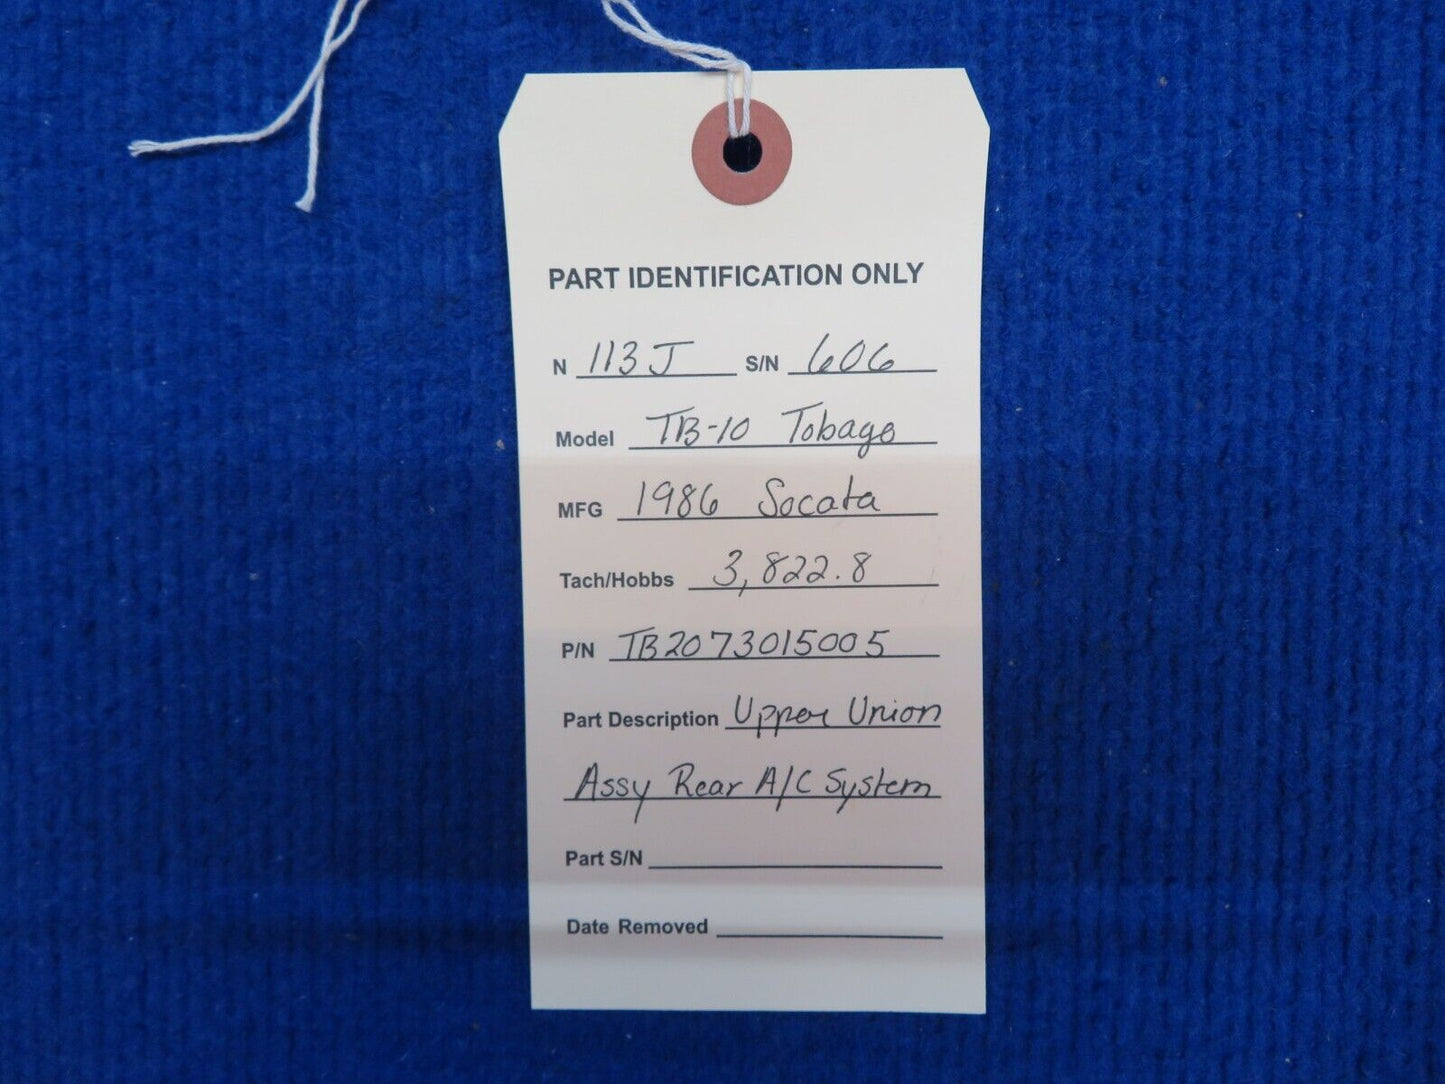 PART IDENTIFICATION ONLY
N 113J S/N 606
Model TB-10 Tobago
MFG 1986 Socata
Tach/Hobbs 3,822.8
P/N TB2073015005
Part Description Upper Union
Assy Rear A/C System
Part S/N
Date Removed